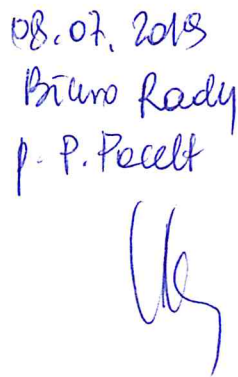 08.07.2019
Biuro Rady
p. P. Pacelt